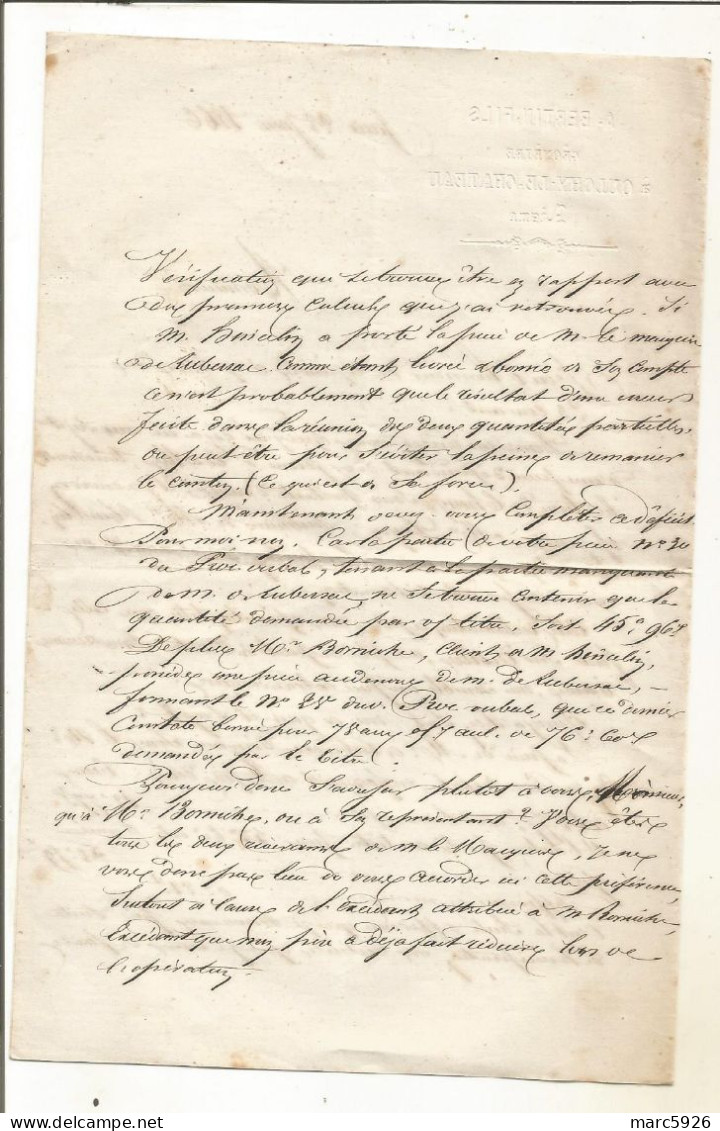 BERTIN-FILS
GÉOMÈTRE
à OULCHY-LE-CHATEAU
Aisne
Vérification qui se trouve être en rapport avec
des premiers calculs que j'ai retrouvés. Si
M. a porté la pièce de M. le marquis
de Lubersac comme étant livré abornée de son compte
ce n'est probablement que le résultat d'une erreur
faite dans la réunion des deux quantités partielles,
ou peut être pour s'éviter la peine de remanier
le (ce qui est de sa force).
Maintenant devez-vous compléter ce déficit
Pour moi non. Car la partie de votre pièce No 30
du Procès verbal, tenant à la partie manquant
de M. de Lubersac, ne se trouve contenir que la
quantité demandée par vos titres, soit 45a 96c
De plus Mr Borniche, client de M.
possède une pièce au dessous de M. de Lubersac, -
formant le No 25 du Procès verbal, que ce dernier
Constate pour 78 ares au lieu de 76a 60c
demandés par le titre.
Pourquoi donc s'adresser plutôt à vous, Monsieur,
qu'à Mr Borniche, ou à son représentant ? Vous êtes
tous les deux riverains de M. le Marquis, Je ne
vois donc pas lieu de vous accorder ici cette préférence,
Surtout à cause de l'excédent attribué à M. Borniche,
Excédent que mon père a déjà fait réduire lors de
l'opération.
marc5926